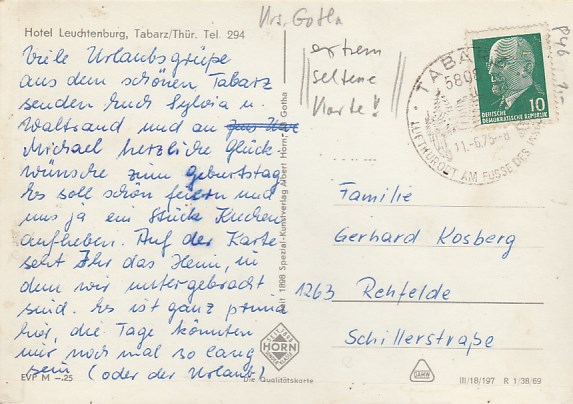 Hotel Leuchtenburg, Tabarz/Thür. Tel. 294
Krs. Gotha
extrem
seltene
Karte!
Viele Urlaubsgrüße
aus dem schönen Tabarz
senden Euch Sylvia u.
Waltraud und an
Michael herzliche Glück-
wünsche zum Geburtstag.
Er soll schön feiern und
uns ja ein Stück Kuchen
aufheben. Auf der Karte
seht Ihr das Heim, in
dem wir untergebracht
sind. Es ist ganz prima
hier, die Tage könnten
nur noch mal so lang
sein (oder der Urlaub)
EVP M –.25
Seit 1896 Spezial-Kunstverlag Albert Horn, Gotha
HORN
Die Qualitätskarte
TABARZ
5808
11.-6.75-8
LUFTKURORT AM FUSSE DES
10
DEUTSCHE
DEMOKRATISCHE REPUBLIK
Familie
Gerhard Kosberg
1263 Rehfelde
Schillerstraße
III/18/197 R 1/38/69